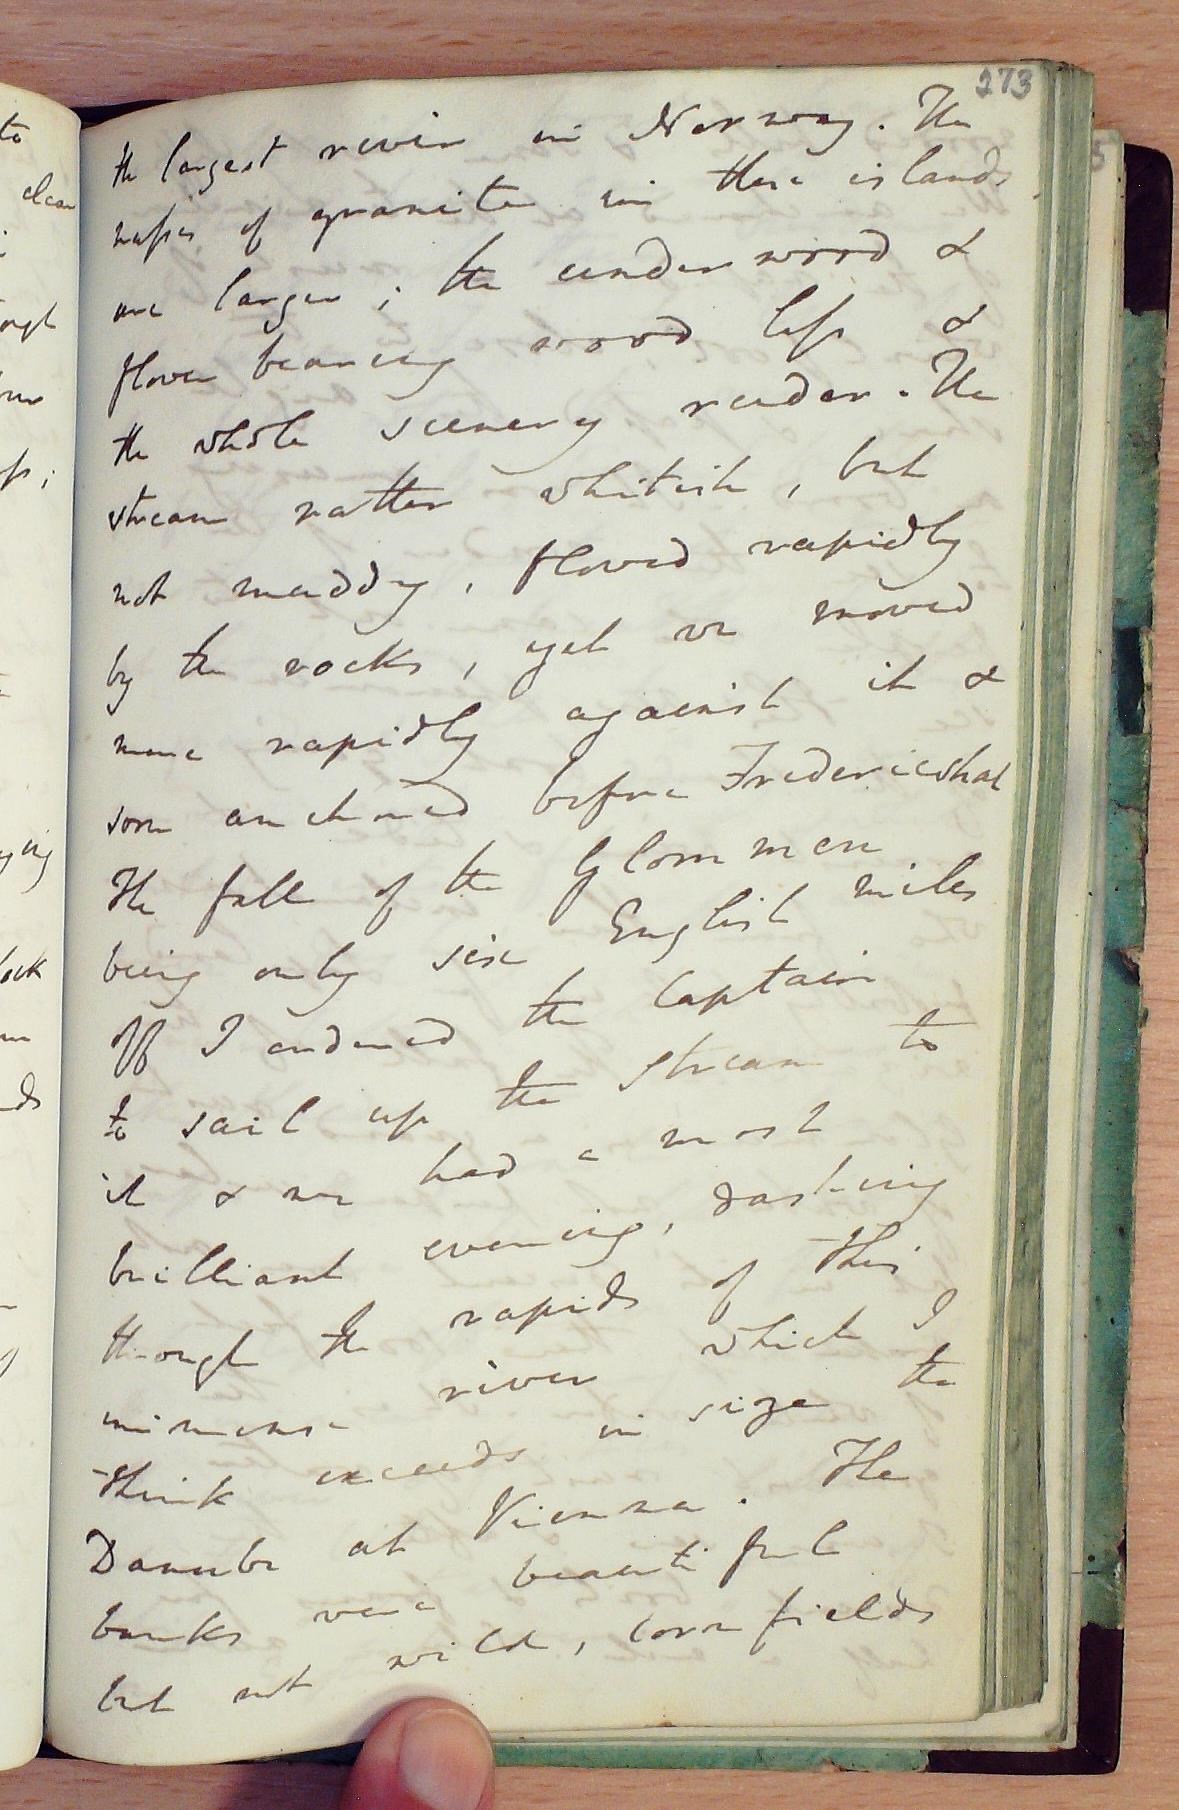 273
the largest river in Norway. The
masses of granite in these islands
are larger; the underwood &
flower bearing wood less &
the whole scenery ruder. The
stream rather whitish, but
not muddy, flowed rapidly
by the rocks, yet we moved
more rapidly against it &
soon anchored before Fredericshal
The fall of the Glommen
being only six English miles
off I ordered the Captain
to sail up the stream to
it & we had a most
brilliant evening, dashing
through the rapids of this
immense river which I
think exceeds in size the
Danube at Vienna. The
banks were beautiful
but not wild, cornfields